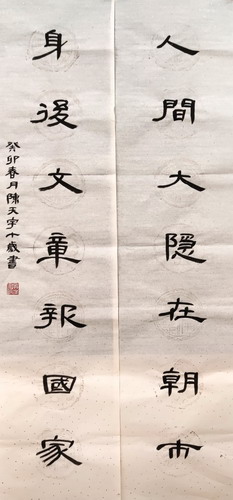 人間大隱在朝市
身後文章報國家
癸卯春月陳天宇十歲書